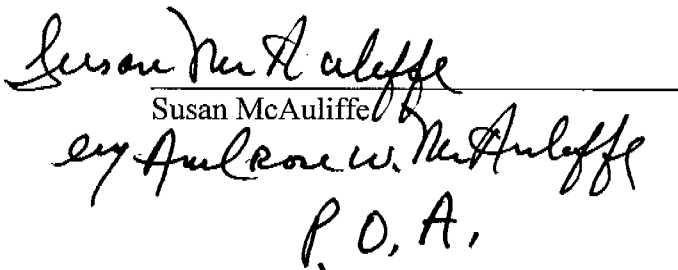 Susan McAuliffe
Susan McAuliffe
by Ambrose W. McAuliffe
P.O.A.